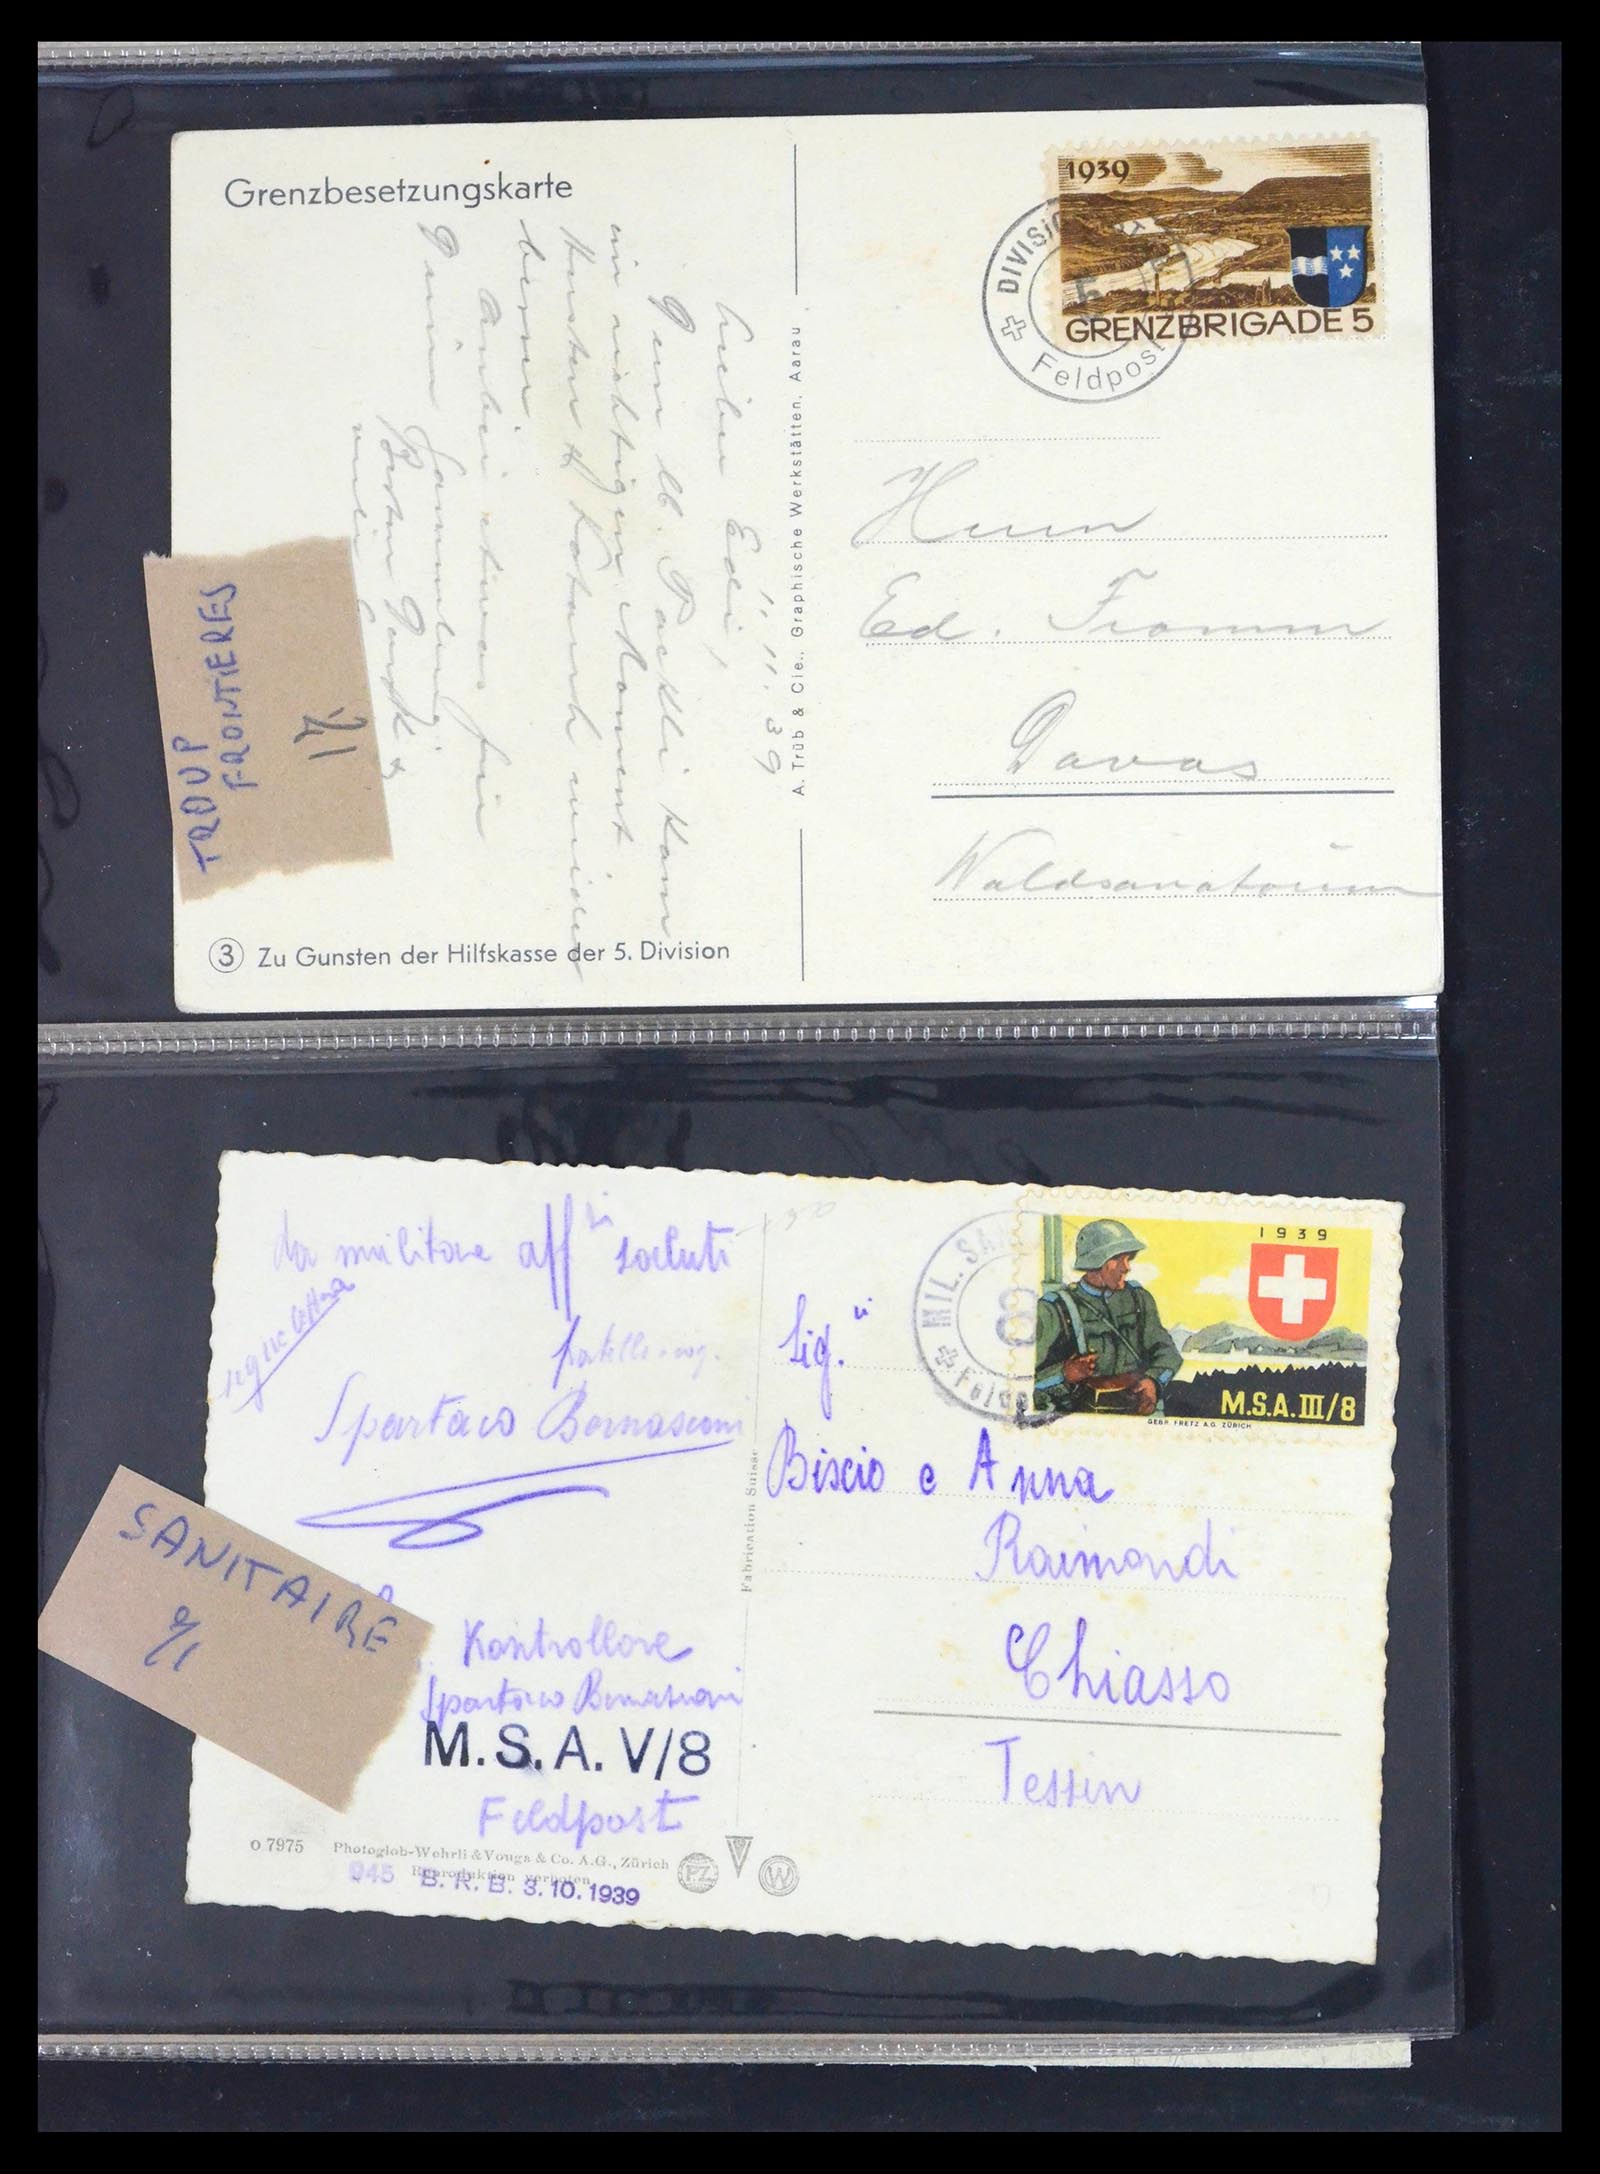 Grenzbesetzungskarte
1939
GRENZBRIGADE 5
5
Feldpost
1. 11. 39
Lieber Edi!
Dein lb. Päckli kam
im richtigen Moment
Husten & Katarrh wieder
besser.
Anbei etwas für
Deine Sammlung
Besten Dank &
A. Trüb & Cie., Graphische Werkstätten, Aarau
Herrn
Ed. Fromm
Davos
Waldsanatorium
TROUP
FRONTIERES
3 Zu Gunsten der Hilfskasse der 5. Division
da militare aff.mi saluti
segue lettera
Spartaco Bernasconi
SANITAIRE
Kontrollore
Spartaco Bernasconi
M.S.A. V/8
Feldpost
o 7975 Photoglob-Wehrli & Vouga & Co. A.G., Zürich
Reproduktion verboten
945 B. R. B. 3.10.1939
PZ
W
Fabrication Suisse
1939
M.S.A. III/8
GEBR. FRETZ A.G. ZÜRICH
Sig.ri
Biscio e Anna
Raimondi
Chiasso
Tessin